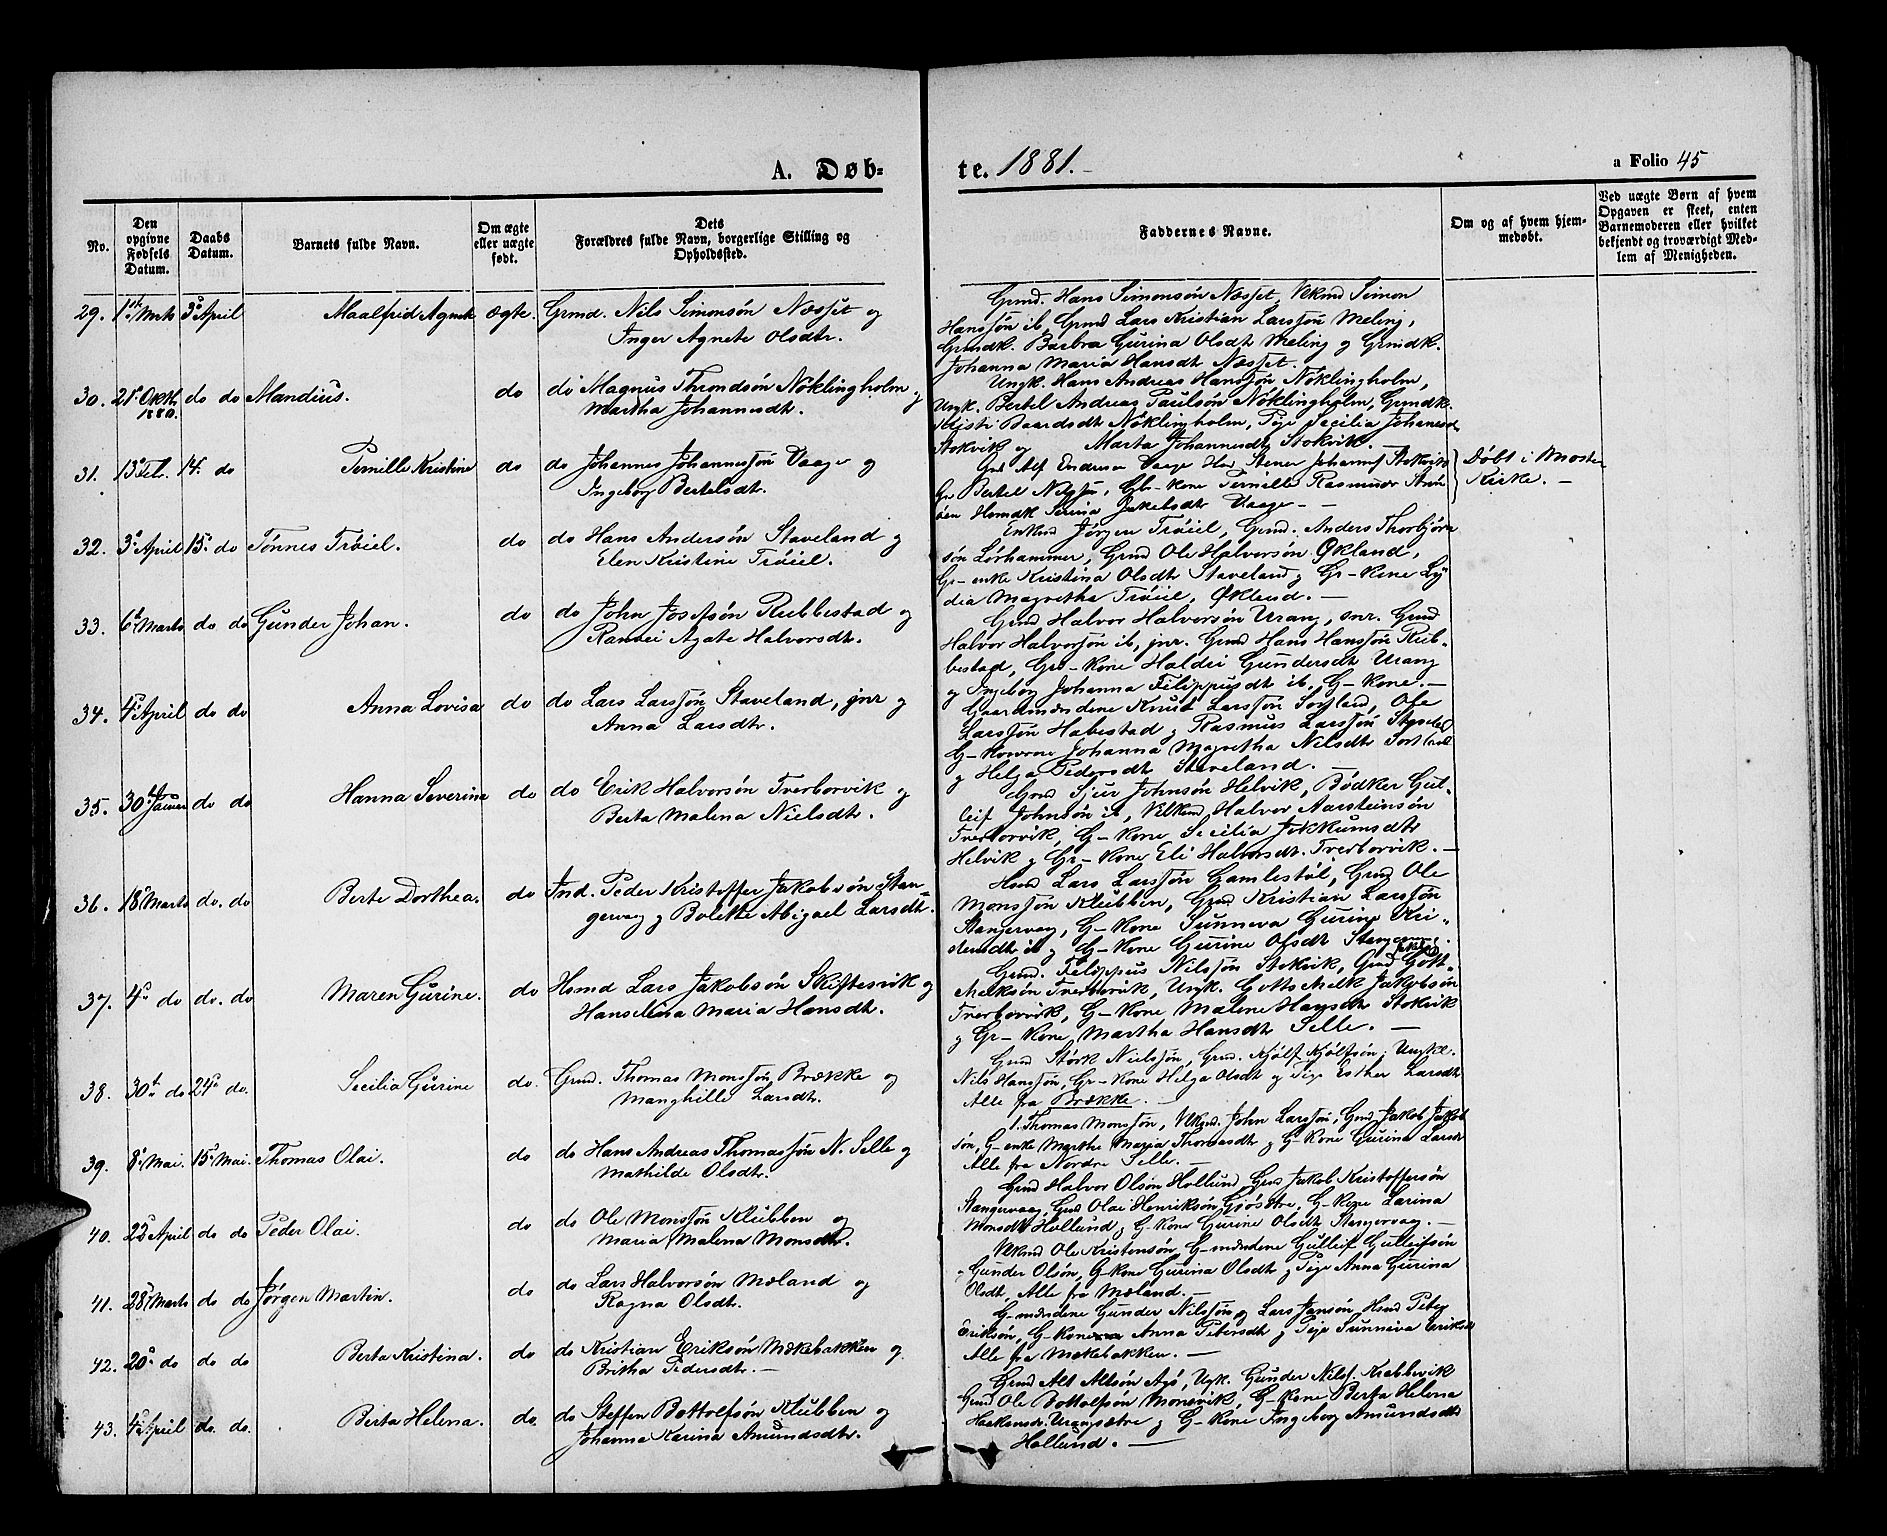 A. Døb-
te. 1881.-
a Folio 45
No.
Den opgivne Fødsels Datum.
Daabs Datum.
Barnets fulde Navn.
Om ægte eller uægte født.
Dets Forældres fulde Navn, borgerlige Stilling og Opholdssted.
Faddernes Navne.
Om og af hvem hjem-
medøbt.
Ved uægte Børn af hvem
Opgaven er skeet, enten
Barnemoderen eller hvilket
bekjendt og troværdigt Med-
lem af Menigheden.
29. 1ste Marts 3die April Maalfrid Agnete ægte. Grmd. Nils Simonsøn Næsset og
Inger Agnete Olsdtr.
Grmd. Hans Simonsøn Næsset, Vekmd Simon
Hanssøn ib, Grmd Lars Kristian Larssøn Meling,
Grmdk. Barbra Gurina Olsdt Meling og Grmdk.
Johanna Maria Hansdt Næsset.
30. 21 Oktb. 1880. do do Mandius. do do Magnus Throndsøn Nøklingholm og
Martha Johannesdtr.
Ungk. Hans Andreas Hanssøn Nøklingholm,
Ungk. Bertel Andreas Paulsøn Nøklingholm, Grmdk.
Baardsdt Nøklingholm, Pige Secilia Johannesd
Stokvik og Marta Johannesdt Stokvik.
31. 13 Feb. 14. do Pernille Kristine do do Johannes Johannessøn Vaage og
Ingeborg Bertelsdt.
Endresen Vaage Stener Johannes Stokvik
Gr Bertel Nilssø, Gb-kone Pernille Rasmusdr
Hsmdk Serina Jakobsdt Vaage - -
Døbt i Moster
Kirke. -
32. 3 April 15 do Tønnes Trøiel. do do Hans Andersøn Staveland og
Elen Kristine Trøiel.
Enkmd Jørgen Trøiel, Grmd. Anders Thorbjørn
søn Lørhammer, Grmd Ole Halvorsøn Økland,
Gr-enke Kristina Olsdt Staveland og Gr-kone Ly
dia Magrethe Trøiel, Økland. -
33. 6 Marts do do Gunder Johan. do do John Josefsøn Rubbestad og
Ranvei Agate Halvorsdt.
Grmd Halvor Halvorsøn Urang, snr. Grmd
Halvor Halvorsøn ib, jnr. Grmd Hans Hanssøn Rub-
bestad, Grd-kone Haldri Gundersdt Urang
og Ingebog Johanna Filippusdt ib. G-kone. -
34. 4 April do do Anna Lovisa do do Lars Larssøn Staveland, jnr og
Anna Larsdtr.
Gaardmændene Knut Larssøn Sortland, Ole
Larssøn Habestad og Rasmus Larssøn Stavelad
G-konerne Johanna Magretha Nilsdtr Sortland
og Helga Pedersdt Staveland. -
35. 30te Januar do do Hanna Severine do do Erik Halvorsøn Tverborvik og
Berta Malena Nielsdtr.
Grmd Sjur Johnsøn Helvik, Bødker Gul-
leif Johnsøn ib, Vekmd Halvor Aarsteinsøn
Tverborvik, G-kone Secilia Jokkumsdtr
Helvik og Gr-kone Eli Halvorsdt. Tverborvik. -
36. 18 Marts do. do Berte Dorthea. do Ind. Peder Kristoffer Jakobsøn Stan-
gervag og Bolette Abigael Larsdtr.
Hsmd Lars Larssøn Gamlestøl, Grmd Ole
Monssøn Klubben, Grmd Kristian Larssøn
Stangervag, G-kone Sunneva Gurine Kri-
stensdt ib og G-kone Gurine Olsdt Stangervag.
37. 4 do do. do Maren Gurine. do Hsmd Lars Jakobsøn Skiftesvik og
Hanselina Maria Hansdt.
Grmd. Filippus Nilssøn Stokvik, Grmd Jakob Gott-
Melksøn Tverborvik, Ungk. Gottsmelk Jakobsøn
Tverborvik, G-kone Malene Hansdt Stokvik
og Gr-kone Martha Hansdt Selle. -
38. 30te do 24 do. Secilia Gurine do. Grmd. Thomas Monssøn Brække og
Manghille Larsdt.
Grmd Størk Nielssøn, Grmd. Kjølf Kjølfsøn, Ungkl.
Nils Hanssøn, Gr-kone Helga Olsdt og Pige Esther Larsdt
Alle fra Brække. -
39. 8 Mai. 15 Mai. Thomas Olai. do do Hans Andreas Thomassøn N. Selle og
Mathilde Olsdt.
Thomas Monssøn, Vekmd. John Larssøn, Grmd Jakob Jakob
søn, G-enke Marthe Maria Thomasdt og G-kone Gurina Larsdt
Alle fra Nordre Selle. -
40. 22 April do do Peder Olai. do do Ole Monssøn Klubben og
Maria Malena Monsdtr.
Grmd Halvor Olsøn Hollund, Grmd Jakob Kristoffersøn
Stangervaag, Grmd Olai Henriksøn Gjøsetre, G-kone Larina
Monsdt Hollund og G-kone Gurine Olsdt Stangervag. -
41. 28 Marts do do Jørgen Martin. do do Lars Halvorsøn Mæland og
Ragna Olsdt.
Vekmd Ole Kristensøn, G-mændene Gulleif Gulleifsøn
og Gunder Olsøn, G-kone Gurina Olsdt og Pige Anna Gurina
Olsdt, Alle fra Mæland. -
42. 20 do do do Berta Kristina. do do Kristian Eriksøn Mækebakken og
Britha Pedersdt. -
G-mændene Gunder Nilssøn og Lars Jansøn, Hsmd Peter
Eriksøn, G-kone Anna Petersdt og Pige Sunneva Eriksdt
Alle fra Mækebakken. -
43. 4 April do. do. Berta Helena. do. do Steffen Bottolfsøn Klubben og
Johanna Karina Amundsdtr.
Grmd Alt Altsøn Agø, Ugk. Gunder Nilss. Krabbevik
Grmd Ole Bottolfsøn Monsvik, G-kone Berta Helena
Haakensdr. Urangsætre og G-kone Ingeborg Amundsdtr
Hollund. -